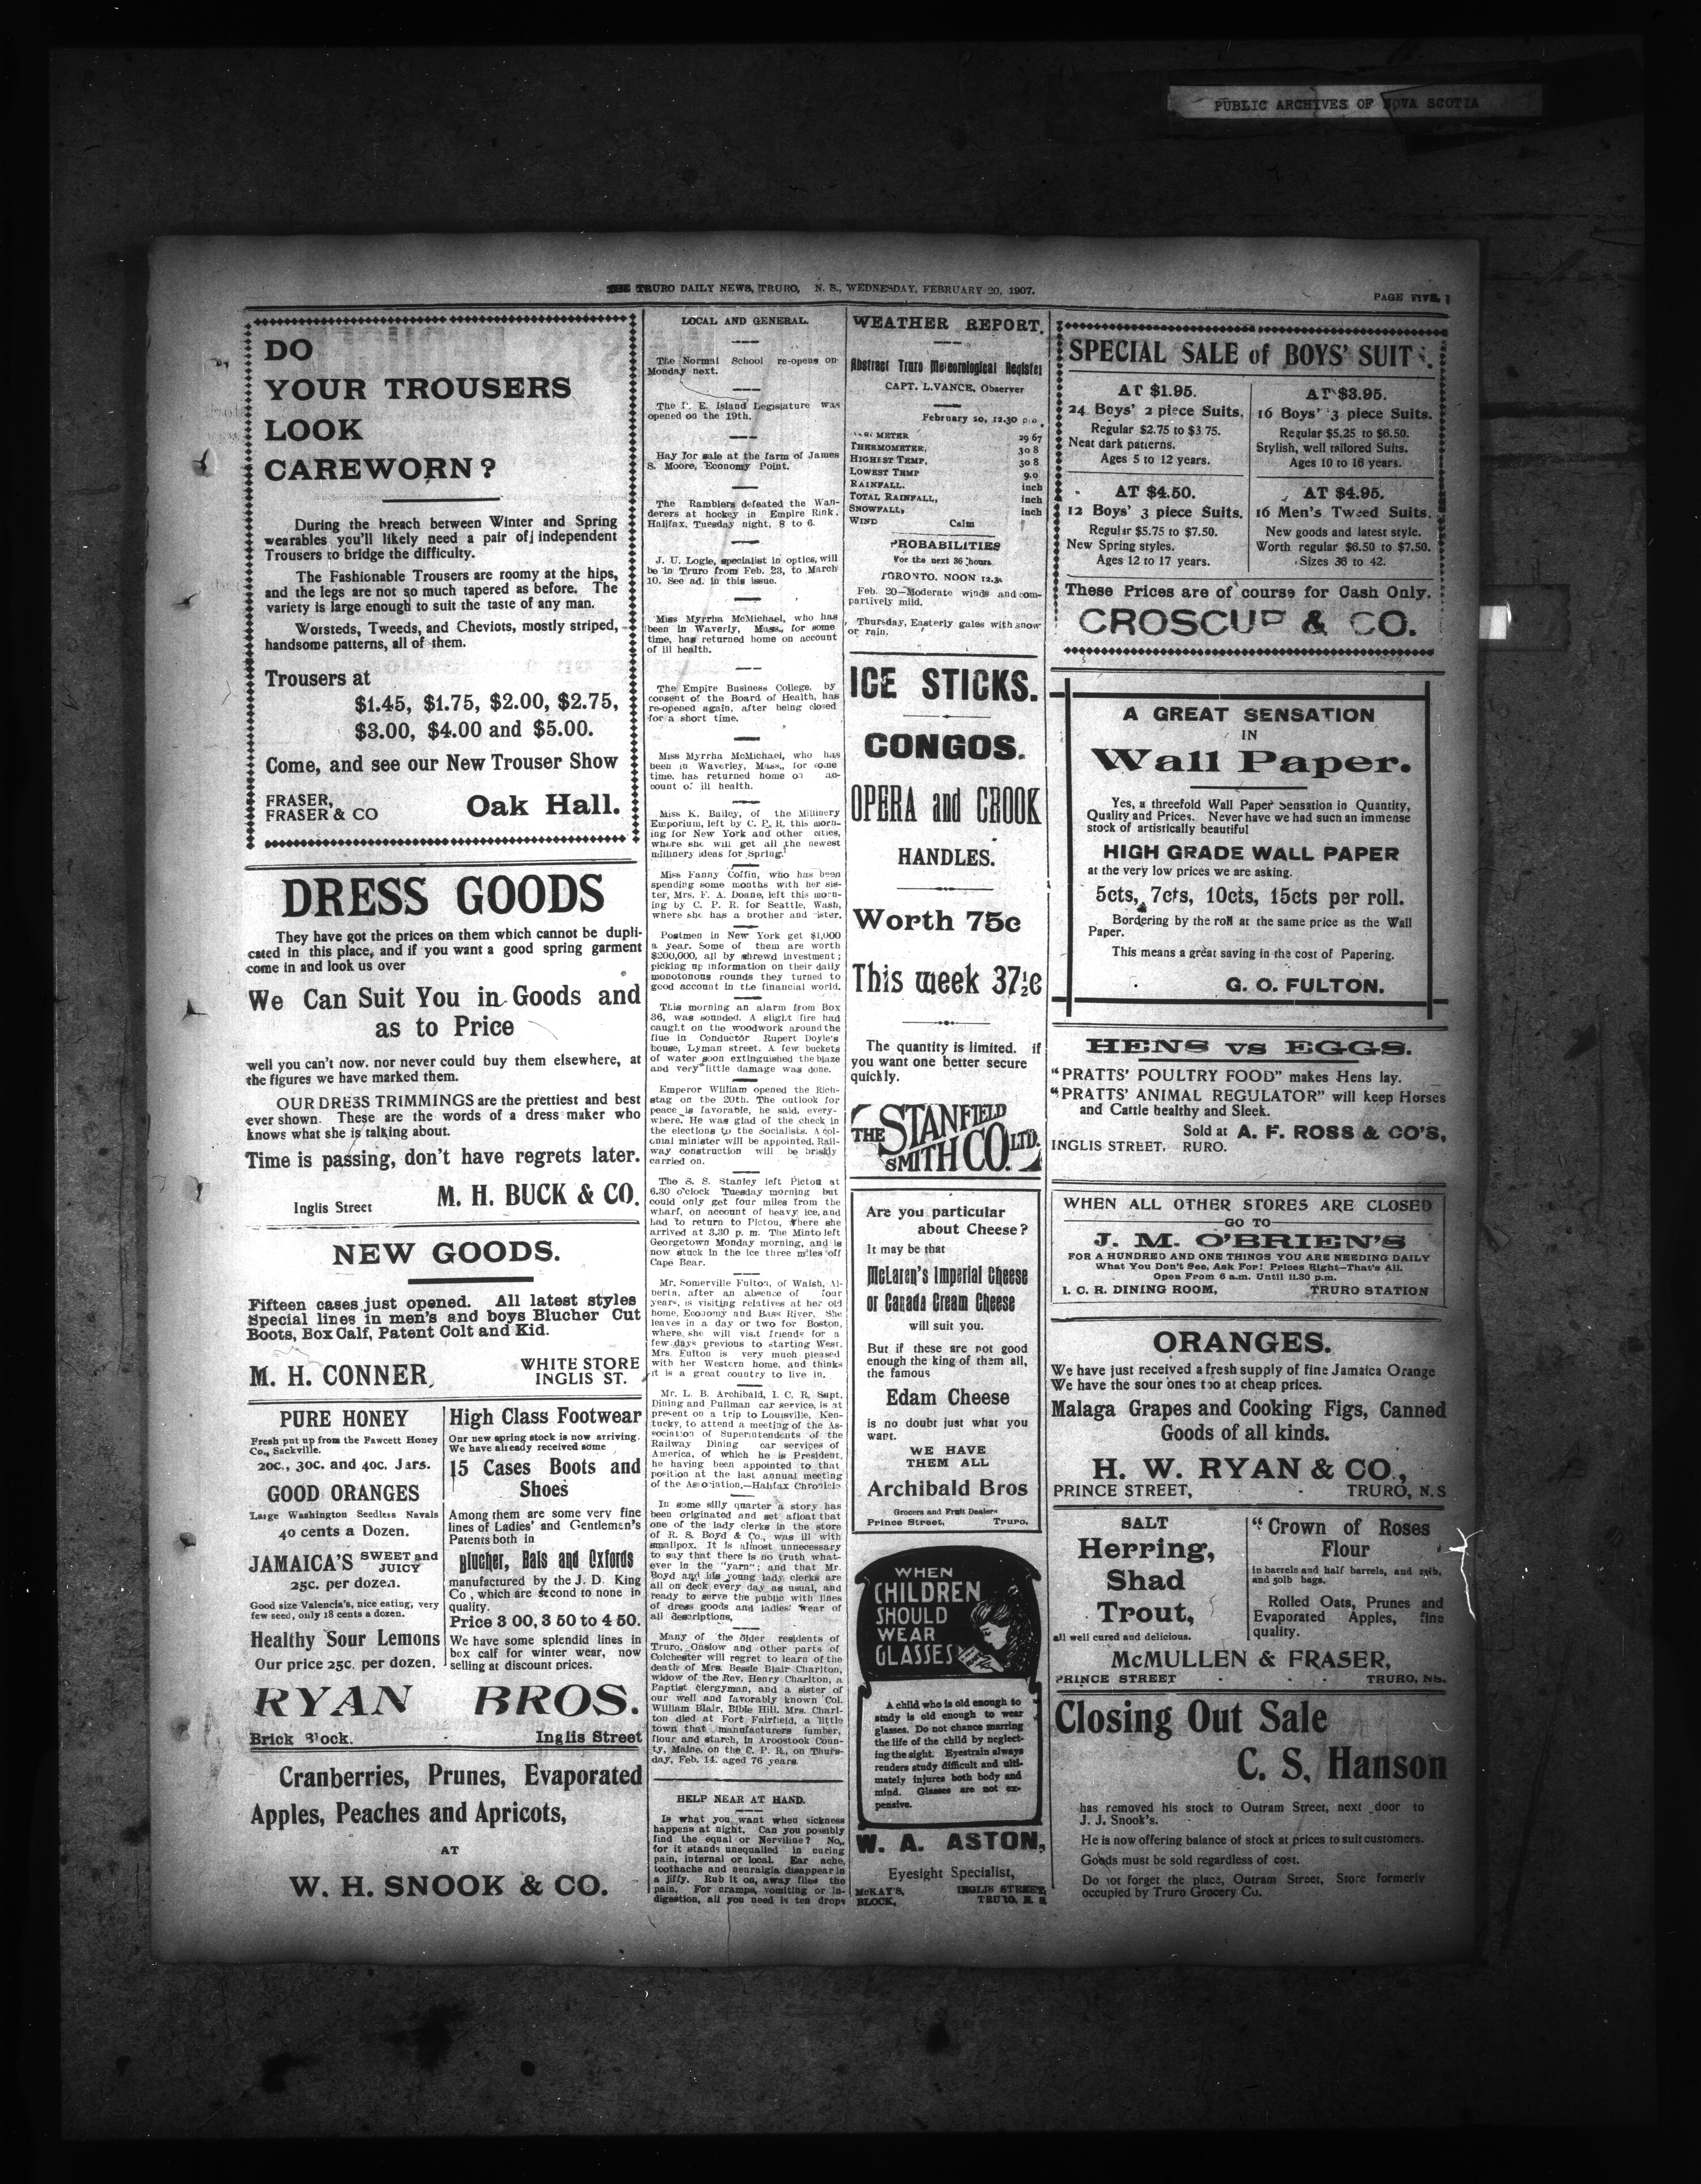 PUBLIC ARCHIVES OF NOVA SCOTIA
THE TRURO DAILY NEWS, TRURO, N. S., WEDNESDAY, FEBRUARY 20, 1907.
PAGE FIVE
DO
YOUR TROUSERS
LOOK
CAREWORN?
During the breach between Winter and Spring
wearables you'll likely need a pair of independent
Trousers to bridge the difficulty.
The Fashionable Trousers are roomy at the hips,
and the legs are not so much tapered as before. The
variety is large enough to suit the taste of any man.
Worsteds, Tweeds, and Cheviots, mostly striped,
handsome patterns, all of them.
Trousers at
$1.45, $1.75, $2.00, $2.75,
$3.00, $4.00 and $5.00.
Come, and see our New Trouser Show
FRASER,
FRASER & CO
Oak Hall.
DRESS GOODS
They have got the prices on them which cannot be dupli-
cated in this place, and if you want a good spring garment
come in and look us over
We Can Suit You in Goods and
as to Price
well you can't now. nor never could buy them elsewhere, at
the figures we have marked them.
OUR DRESS TRIMMINGS are the prettiest and best
ever shown. These are the words of a dress maker who
knows what she is talking about.
Time is passing, don't have regrets later.
Inglis Street
M. H. BUCK & CO.
NEW GOODS.
Fifteen cases just opened. All latest styles
Special lines in men's and boys Blucher Cut
Boots, Box Calf, Patent Colt and Kid.
M. H. CONNER,
WHITE STORE
INGLIS ST.
PURE HONEY
Fresh put up from the Fawcett Honey
Co., Sackville.
20c., 30c. and 40c. Jars.
GOOD ORANGES
Large Washington Seedless Navals
40 cents a Dozen.
JAMAICA'S SWEET and
JUICY
25c. per dozen.
Good size Valencia's, nice eating, very
few seed, only 18 cents a dozen.
Healthy Sour Lemons
Our price 25c. per dozen.
High Class Footwear
Our new spring stock is now arriving.
We have already received some
15 Cases Boots and
Shoes
Among them are some very fine
lines of Ladies' and Gentlemen's
Patents both in
Blucher, Bals and Oxfords
manufactured by the J. D. King
Co , which are second to none in
quality.
Price 3 00, 3 50 to 4 50.
We have some splendid lines in
box calf for winter wear, now
selling at discount prices.
RYAN BROS.
Brick Block.
Inglis Street
Cranberries, Prunes, Evaporated
Apples, Peaches and Apricots,
AT
W. H. SNOOK & CO.
LOCAL AND GENERAL.
The Normal School re-opens on
Monday next.
The P. E. Island Legislature was
opened on the 19th.
Hay for sale at the farm of James
S. Moore, Economy Point.
The Ramblers defeated the Wan-
derers at hockey in Empire Rink,
Halifax, Tuesday night, 8 to 6.
J. U. Logie, specialist in optics, will
be in Truro from Feb. 23, to March
10. See ad. in this issue.
Miss Myrrha McMichael, who has
been in Waverly, Mass., for some
time, has returned home on account
of ill health.
The Empire Business College, by
consent of the Board of Health, has
re-opened again, after being closed
for a short time.
Miss Myrrha McMichael, who has
been in Waverley, Mass., for some
time, has returned home on ac-
count of ill health.
Miss K. Bailey, of the Millinery
Emporium, left by C. P. R. this morn-
ing for New York and other cities,
where she will get all the newest
millinery ideas for Spring.
Miss Fanny Coffin, who has been
spending some months with her sis-
ter, Mrs. F. A. Doane, left this morn-
ing by C. P. R. for Seattle, Wash,
where she has a brother and sister.
Postmen in New York get $1,000
a year. Some of them are worth
$200,000, all by shrewd investment;
picking up information on their daily
monotonous rounds they turned to
good account in the financial world.
This morning an alarm from Box
36, was sounded. A slight fire had
caught on the woodwork around the
flue in Conductor Rupert Doyle's
house, Lyman street. A few buckets
of water soon extinguished the blaze
and very little damage was done.
Emperor William opened the Rich-
stag on the 20th. The outlook for
peace is favorable, he said, every-
where. He was glad of the check in
the elections to the Socialists. A col-
onial minister will be appointed. Rail-
way construction will be briskly
carried on.
The S. S. Stanley left Pictou at
6.30 o'clock Tuesday morning but
could only get four miles from the
wharf, on account of heavy ice, and
had to return to Pictou, where she
arrived at 3.30 p. m. The Minto left
Georgetown Monday morning, and is
now stuck in the ice three miles off
Cape Bear.
Mr. Somerville Fulton, of Walsh, Al-
berta, after an absence of four
years, is visiting relatives at her old
home, Economy and Bass River. She
leaves in a day or two for Boston,
where she will visit friends for a
few days previous to starting West.
Mrs. Fulton is very much pleased
with her Western home, and thinks
it is a great country to live in.
Mr. L. B. Archibald, I. C. R. Supt.
Dining and Pullman car service, is at
present on a trip to Louisville, Ken-
tucky, to attend a meeting of the As-
sociation of Superintendents of the
Railway Dining car services of
America, of which he is President,
he having been appointed to that
position at the last annual meeting
of the Association.—Halifax Chronicle
In some silly quarter a story has
been originated and set afloat that
one of the lady clerks in the store
of R. S. Boyd & Co., was ill with
smallpox. It is almost unnecessary
to say that there is no truth what-
ever in the "yarn"; and that Mr.
Boyd and his young lady clerks are
all on deck every day as usual, and
ready to serve the public with lines
of dress goods and ladies' wear of
all descriptions,
Many of the older residents of
Truro, Onslow and other parts of
Colchester will regret to learn of the
death of Mrs. Bessie Blair Charlton,
widow of the Rev. Henry Charlton, a
Paptist clergyman, and a sister of
our well and favorably known Col.
William Blair, Bible Hill. Mrs. Charl-
ton died at Fort Fairfield, a little
town that manufacturers lumber,
flour and starch, in Aroostook Coun-
ty, Maine, on the C. P. R., on Thurs-
day, Feb. 14. aged 76 years.
HELP NEAR AT HAND.
Is what you want when sickness
happens at night. Can you possibly
find the equal or Nerviline? No,
for it stands unequalled in curing
pain, internal or local. Ear ache,
toothache and neuralgia disappear in
a jiffy. Rub it on, away flies the
pain. For cramps, vomiting or in-
digestion, all you need is ten drops
WEATHER REPORT.
Abstract Truro Meteorological Register
CAPT. L. VANCE, Observer
February 20, 12.30 p.m.
METER 29 67
THERMOMETER, 30 8
HIGHEST TEMP, 30 8
LOWEST TEMP 9.0
RAINFALL. inch
TOTAL RAINFALL, inch
SNOWFALL, inch
WIND Calm
PROBABILITIES
For the next 36 hours.
TORONTO, NOON 12.30
Feb. 20—Moderate winds and com-
partively mild.
Thursday, Easterly gales with snow
or rain.
ICE STICKS.
CONGOS.
OPERA and CROOK
HANDLES.
Worth 75c
This week 37½c
The quantity is limited. if
you want one better secure
quickly.
THE STANFIELD
SMITH CO. LTD.
Are you particular
about Cheese?
It may be that
McLaren's Imperial Cheese
or Canada Cream Cheese
will suit you.
But if these are not good
enough the king of them all,
the famous
Edam Cheese
is no doubt just what you
want.
WE HAVE
THEM ALL
Archibald Bros
Grocers and Fruit Dealers
Prince Street, Truro.
WHEN
CHILDREN
SHOULD
WEAR
GLASSES
A child who is old enough to
study is old enough to wear
glasses. Do not chance marring
the life of the child by neglect-
ing the sight. Eyestrain always
renders study difficult and ulti-
mately injures both body and
mind. Glasses are not ex-
pensive.
W. A. ASTON,
Eyesight Specialist,
McKAY'S
BLOCK,
INGLIS STREET,
TRURO, N. S
SPECIAL SALE of BOYS' SUITS.
AT $1.95.
24 Boys' 2 piece Suits.
Regular $2.75 to $3 75.
Neat dark patterns.
Ages 5 to 12 years.
AT $3.95.
16 Boys' 3 piece Suits.
Regular $5.25 to $6.50.
Stylish, well tailored Suits.
Ages 10 to 16 years.
AT $4.50.
12 Boys' 3 piece Suits.
Regular $5.75 to $7.50.
New Spring styles.
Ages 12 to 17 years.
AT $4.95.
16 Men's Tweed Suits.
New goods and latest style.
Worth regular $6.50 to $7.50.
Sizes 36 to 42.
These Prices are of course for Cash Only.
CROSCUP & CO.
A GREAT SENSATION
IN
Wall Paper.
Yes, a threefold Wall Paper Sensation in Quantity,
Quality and Prices. Never have we had such an immense
stock of artistically beautiful
HIGH GRADE WALL PAPER
at the very low prices we are asking.
5cts, 7cts, 10cts, 15cts per roll.
Bordering by the roll at the same price as the Wall
Paper.
This means a great saving in the cost of Papering.
G. O. FULTON.
HENS vs EGGS.
"PRATTS' POULTRY FOOD" makes Hens lay.
"PRATTS' ANIMAL REGULATOR" will keep Horses
and Cattle healthy and Sleek.
Sold at A. F. ROSS & CO'S,
INGLIS STREET, RURO.
WHEN ALL OTHER STORES ARE CLOSED
GO TO
J. M. O'BRIEN'S
FOR A HUNDRED AND ONE THINGS YOU ARE NEEDING DAILY
What You Don't See, Ask For! Prices Right—That's All.
Open From 6 a.m. Until 11.30 p.m.
I. C. R. DINING ROOM, TRURO STATION
ORANGES.
We have just received a fresh supply of fine Jamaica Orange
We have the sour ones too at cheap prices.
Malaga Grapes and Cooking Figs, Canned
Goods of all kinds.
H. W. RYAN & CO.,
PRINCE STREET, - TRURO, N.S
SALT
Herring,
Shad
Trout,
all well cured and delicious.
"Crown of Roses
Flour
in barrels and half barrels, and 25lb,
and 50lb bags.
Rolled Oats, Prunes and
Evaporated Apples, fine
quality.
McMULLEN & FRASER,
PRINCE STREET - - - TRURO, NS.
Closing Out Sale
C. S. Hanson
has removed his stock to Outram Street, next door to
J. J. Snook's.
He is now offering balance of stock at prices to suit customers.
Goods must be sold regardless of cost.
Do not forget the place, Outram Street, Store formerly
occupied by Truro Grocery Co.